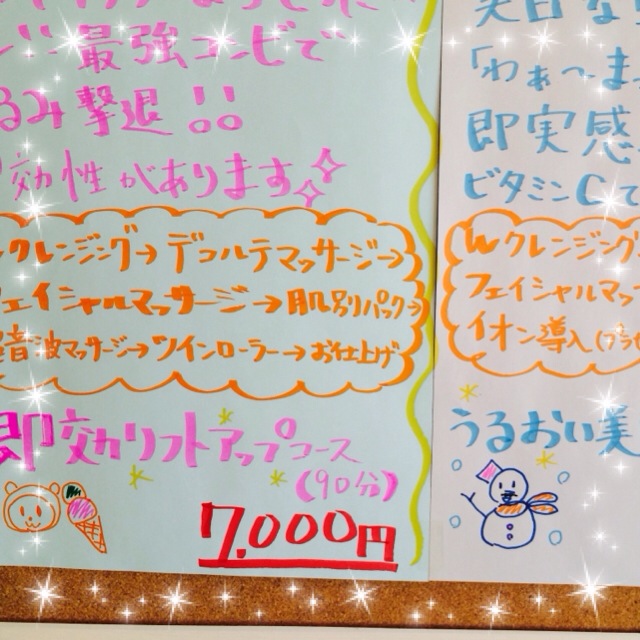 最強コンビで
るみ撃退!!
効性があります
クレンジング→デコルテマッサージ→
フェイシャルマッサージ→肌別パック→
超音波マッサージ→ツインローラー→お仕上げ
即効リフトアップコース
(90分)
7,000円
「わぁ〜ま
即実感
ビタミンCで
Wクレンジング
フェイシャルマッ
イオン導入(プラセ
うるおい美